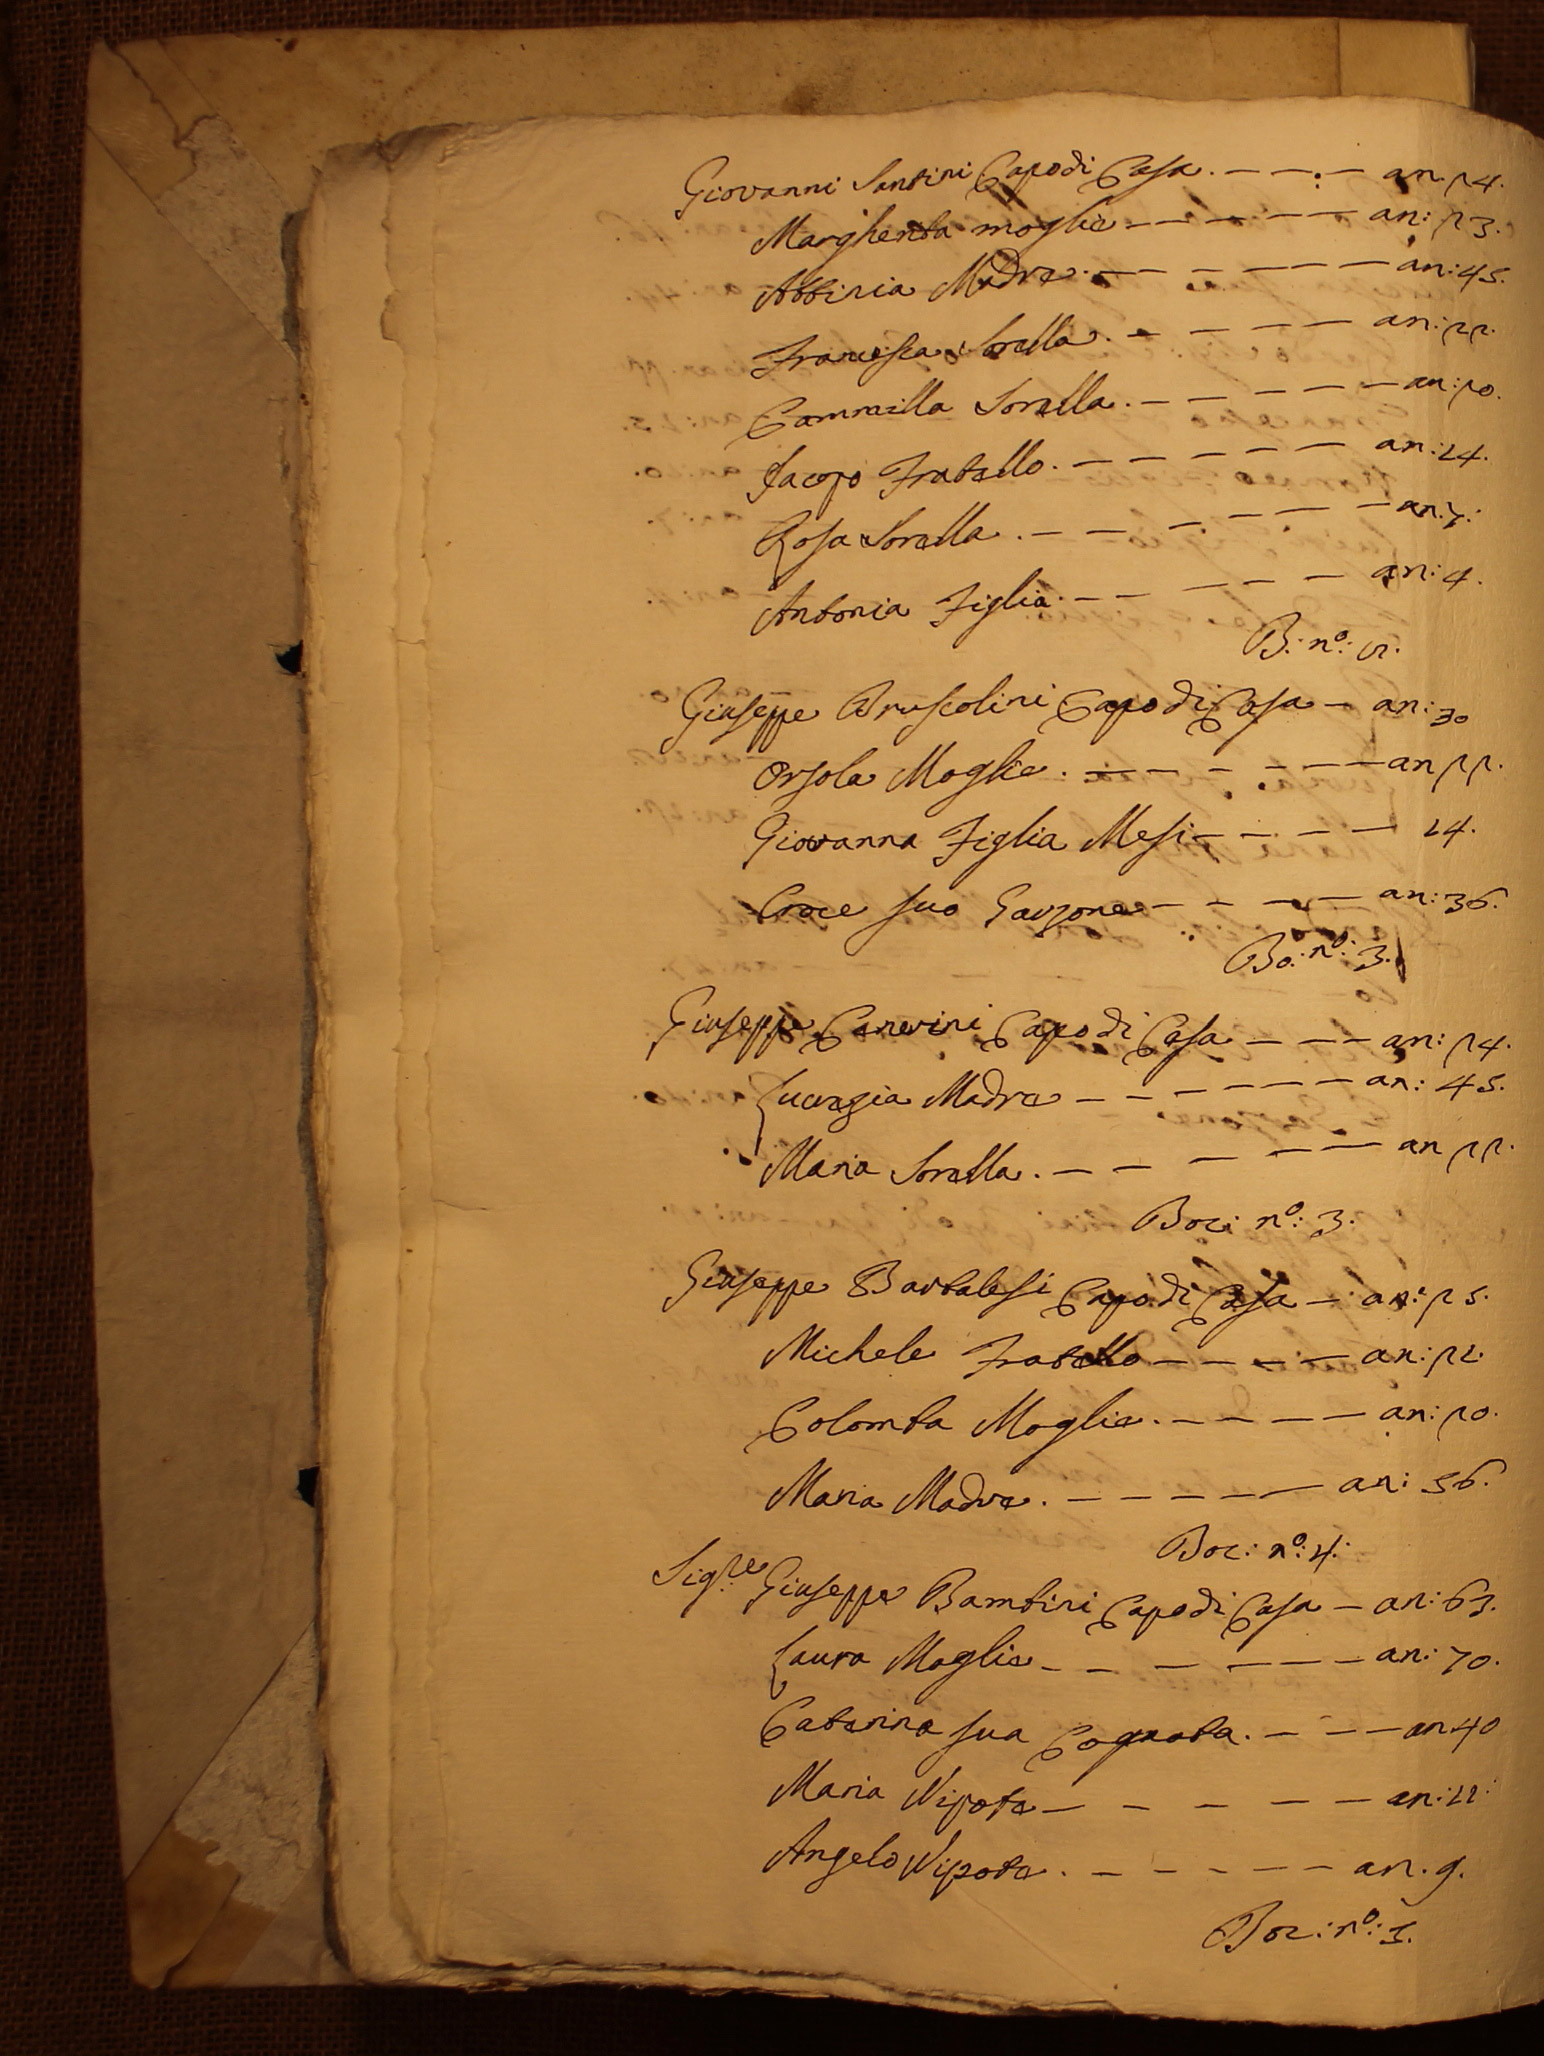 Giovanni Santini Capo di Casa. — — . — an. 24.
Margherita moglie — — — — — — an: 23.
Abbinia Madre. — — — — — — an: 45.
Francesca Sorella. — — — — — an: 22.
Cammilla Sorella. — — — — — an: 20.
Jacopo Fratello. — — — — — — an: 14.
Rosa Sorella. — — — — — — — an: 7.
Antonia Figlia. — — — — — an: 4.
B: nº:
Giuseppe Bruscolini Capo di Casa — an: 30
Orsola Moglie. — — — — — — an 22.
Giovanna Figlia Mesi — — — — 14.
Croce suo Garzone — — — — an: 36.
Bo: nº: 3.
Giuseppe Canevini Capo di Casa — — — an: 24.
Lucrezia Madre — — — — — — an: 45.
Maria Sorella. — — — — — an 22.
Boc: nº: 3.
Giuseppe Bartalesi Capo di Casa — an: 25.
Michele Fratello — — — — an: 21.
Colomba Moglie. — — — — — an: 20.
Maria Madre. — — — — — an: 56.
Boc: nº: 4.
Sig.re Giuseppe Bambini Capo di Casa — an: 63.
Laura Moglie — — — — — — an: 70.
Caterina sua Cognata. — — — an 40
Maria Nipote — — — — — — an: 11.
Angelo Nipote. — — — — — an. 9.
Boc: nº: